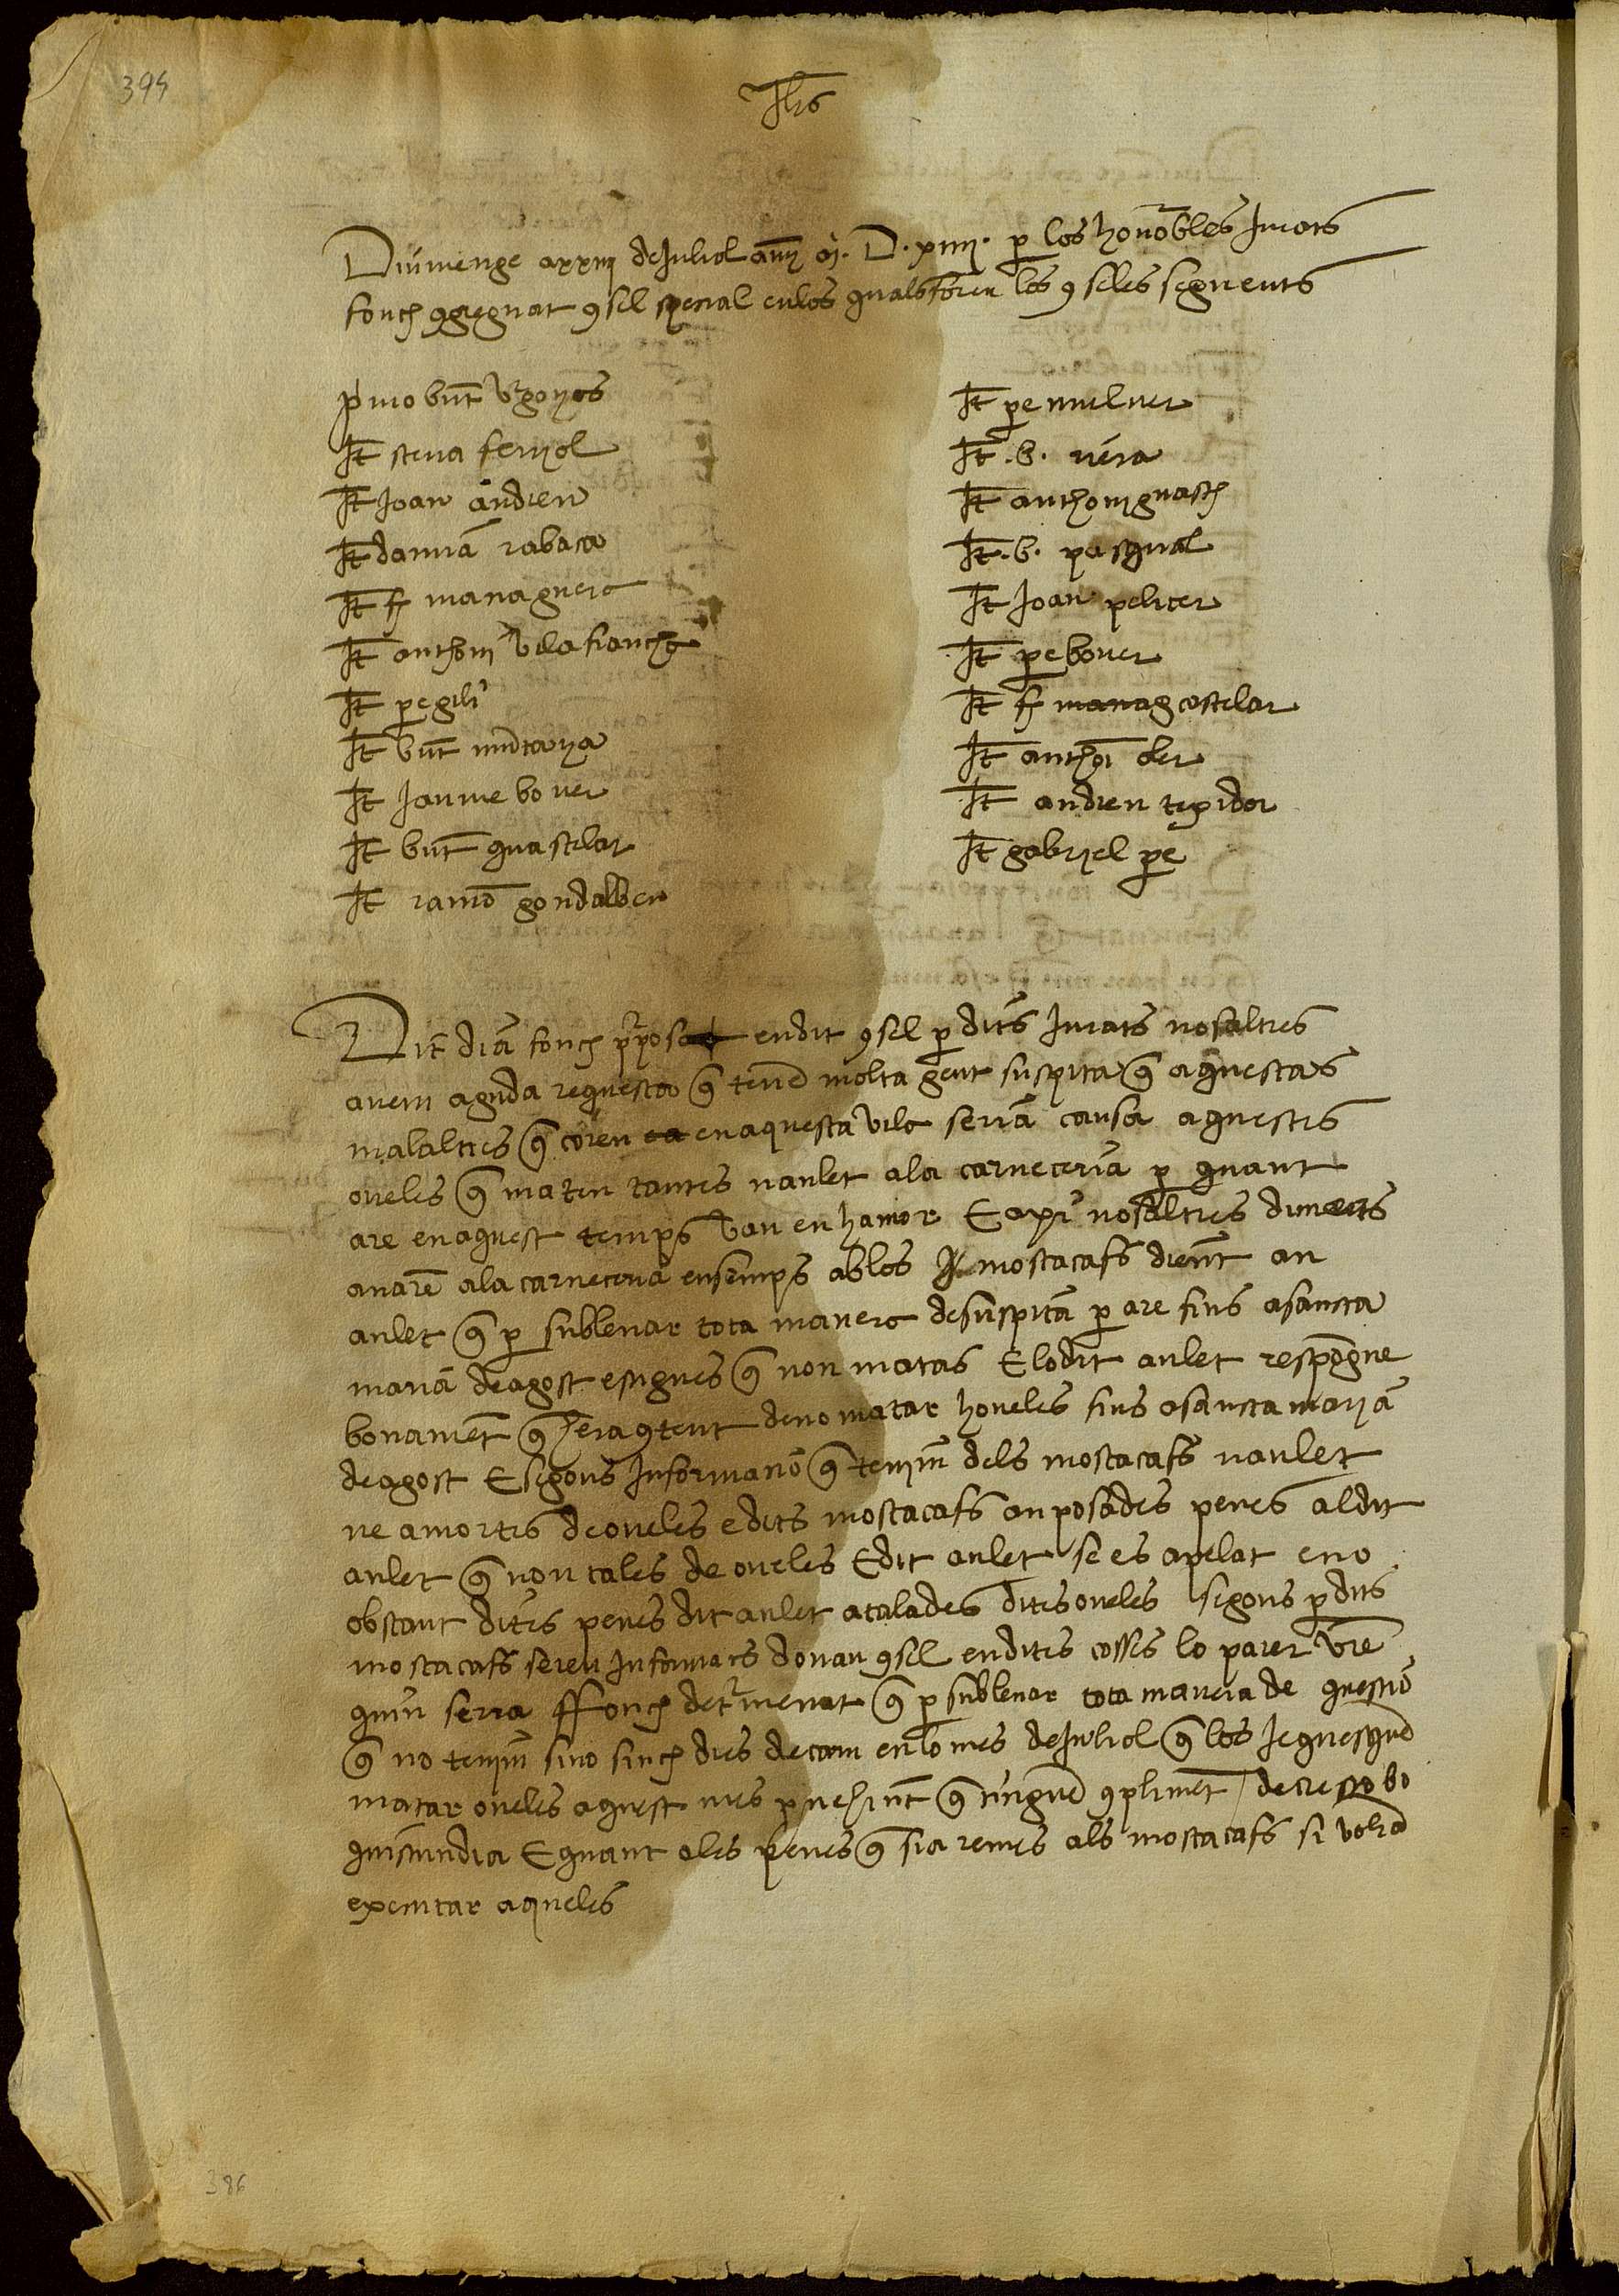 394
Jhs
Diumenge a xxiij de Juliol any M. D. xiiij. p los honorables Jurats
fonch 9gregat 9sel special en los quals foren los 9seles seguents
pmo bnt
It steva feriol
It Joan andreu
It damia rabaca
It f managuera
It anthoni vilafrancha
It pe gili
It bnt muntanya
It Jaume bover
It bnt quastelar
It ramo gondalbeu
It pe muluer
It .b. riera
It anthoni guasch
It .b. pasqual
It Joan pelicer
It pe bover
It f manag castelar
It anthoni oler
It andreu texidor
It gabriel pe
Dit dia fonch pposat en dit 9sel p dits Jurats nosaltres
avem aguda requesta q tene molta gent suspita q aquestas
malalties q coren ea en aquesta vila seria causa aquestes
oveles q maten tantes naulet a la carneceria p quant
are en aquest temps van en hamor E axi nosaltres dimecres
anare a la carneceria ensemps ab los mostacafs dient an
aulet q p sublevar tota manera de suspita p are fins a sancta
maria de agost estigues q non matas E lo dit aulet respogue
bonament q era 9tent de no matar hoveles fins a sancta maria
de agost E segons Informacio q tenim dels mostacafs naulet
ne a mortes de oveles e dits mostacafs an posades penes al dit
aulet q non tales de oveles E dit aulet se es apelat e no
obstant dites penes dit aulet a talades dites oveles segons p dits
mostacafs seren Informats donau 9sel en dites cosses lo parer vre
quin serra ffonch determenat q p sublevar tota manera de questio
q no tenim sino sinch dies de carn en lo mes de Juliol q los
matar oveles aquest mes pvehint q tingue 9pliment de
E quant a les penes q sia remes als mostacafs si volra
executar aqueles
386